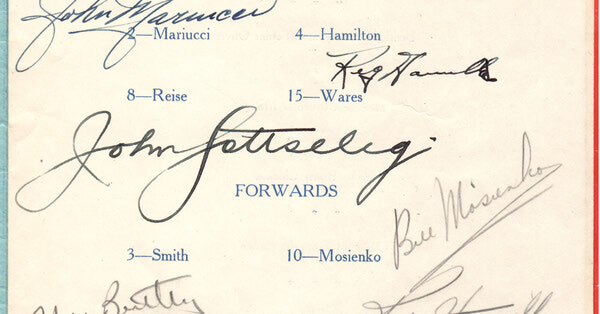 John Mariucci
2—Mariucci 4—Hamilton
Reg Hamilton
8—Reise 15—Wares
John Gottselig
FORWARDS
Bill Mosienko
3—Smith 10—Mosienko
Bentley